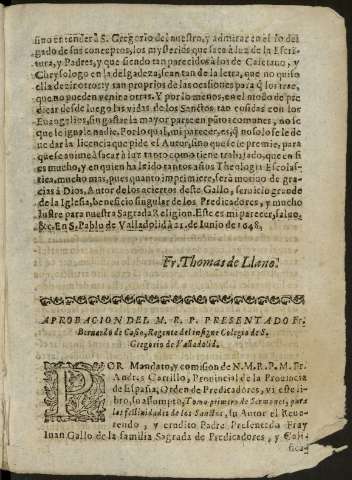 sino entender à S. Gregorio del nuestro, y admirar en el lo del
gado de sus conceptos, los mysterios que saca à luz de la Escri
tura, y Padres, y que siendo tan parecidos à los de Caietano, y
Chrysologo en la delgadeza, sean tan de la letra, que no quiso
ella dezir otros: y tan proprios de las ocasiones para q̃ los trae,
que no pueden venir a otras. Y por lo menos, en el modo de pre
dicar desde luego las vidas de los Sanctos, tan cosidas con los
Euangelios, sin gastar la mayor parte en pũtos comunes, no se
que le iguale nadie. Por lo qual, mi parecer, es, q̃ no solo se le de
ue dar la licencia que pide el Autor, sino que se le premie, para
que se anime à sacar à luz tanto como tiene trabajado, que en si
es mucho, y en quien ha leido tantos años Theologia Escolas-
tica, mucho mas, pues quanto imprimiere, serà motiuo de gra-
cias à Dios, Autor de los aciertos deste Gallo, seruicio grande
de la Iglesia, beneficio singular de los Predicadores, y mucho
lustre para nuestra Sagrada Religion. Este es mi parecer, saluo,
&c. En S. Pablo de Valladolid à 21. de Iunio de 1648.
Fr. Thomas de Llano.
APROBACION DEL M. R. P. PRESENTADO Fr.
Bernardo de Casio, Regente del insigne Colegio de S.
Gregorio de Valladolid.
POR Mandato, y comision de N. M. R. P. M. Fr.
Andres Carrillo, Prouincial de la Prouincia
de España, Orden de Predicadores, vi este li-
bro, su assumpto, Tomo primero de Sermones, para
las festiuidades de los Santos, su Autor el Reue-
rendo, y erudito Padre Presentado Fray
Iuan Gallo de la familia Sagrada de Predicadores, y Cali-